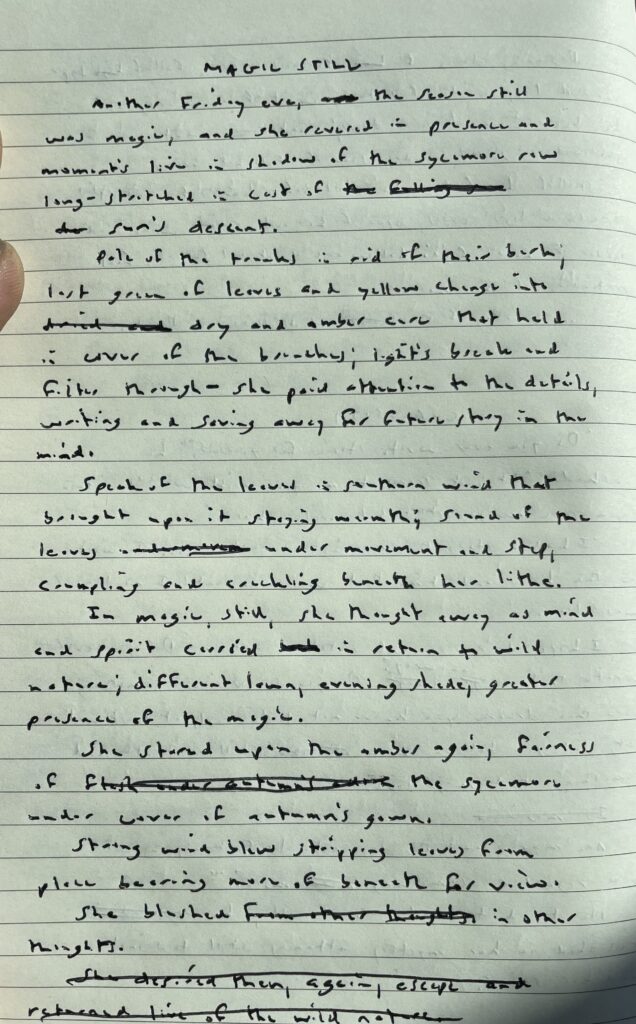 MAGIC STILL
Another Friday eve, the season still
was magic, and she revered in presence and
moment's live in shadow of the sycamore row
long-stretched in cast of the falling sun
sun's descent.
Pale of the trunks in rid of their bark;
last green of leaves and yellow change into
dried and dry and amber care that held
in cover of the branches; light's break and
filter through- she paid attention to the details,
writing and saving away for future story in the
mind.
Speak of the leaves in southern wind that
brought upon it staying warmth; sound of the
leaves under movement and step,
crumpling and crackling beneath her lithe.
In magic, still, she thought away as mind
and spirit carried in return to wild
nature; different lawn, evening shade, greater
presence of the magic.
She stared upon the amber again, fairness
of flesh under autumn's the sycamore
under cover of autumn's gown.
Strong wind blew stripping leaves from
place bearing more of beneath for view.
She blushed from other thoughts in other
thoughts.
She desired then, again, escape and
returned live of the wild nature